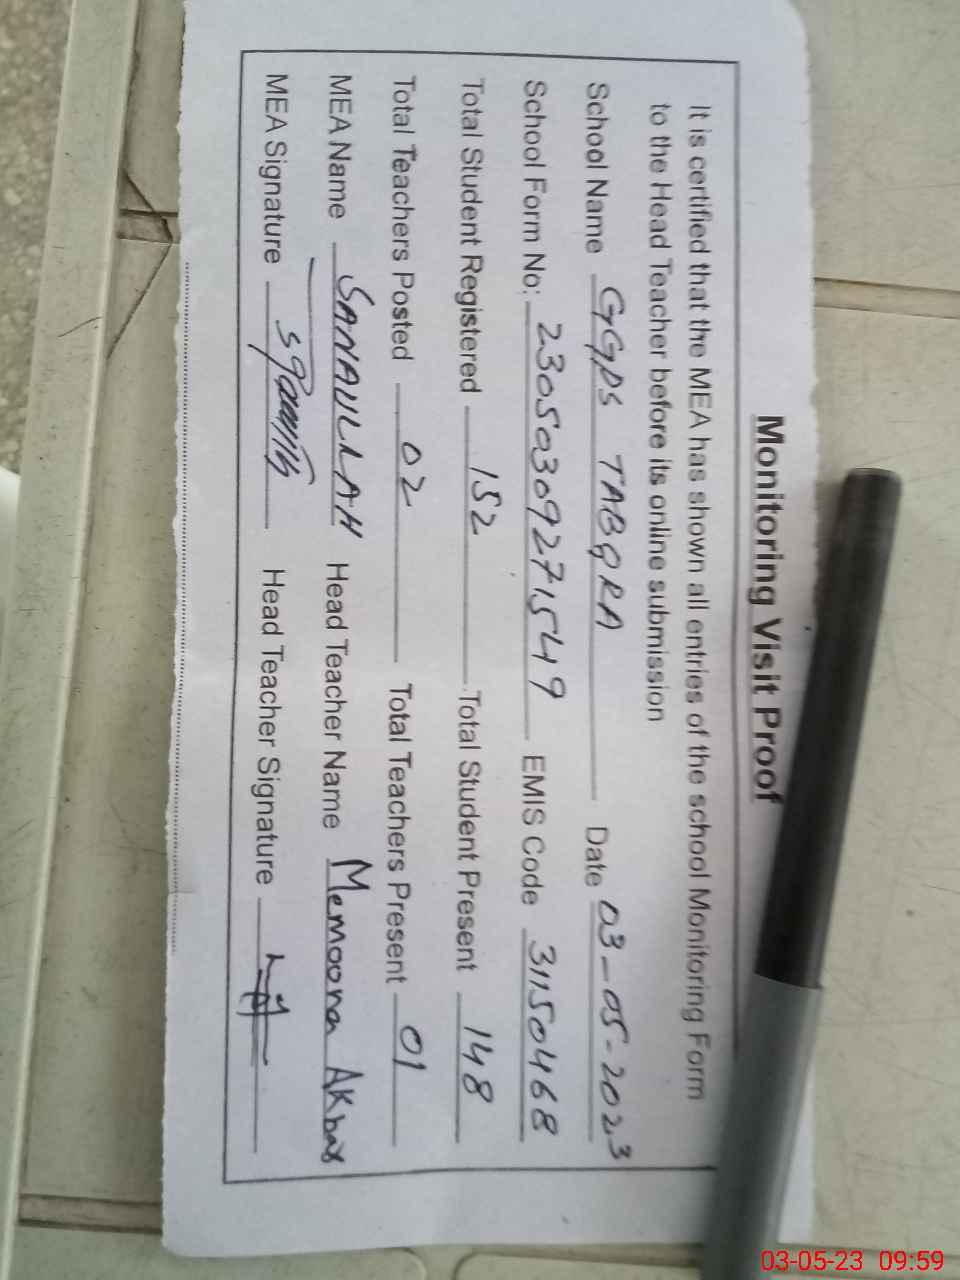 Monitoring Visit Proof
It is certified that the MEA has shown all entries of the school Monitoring Form
to the Head Teacher before its online submission
School Name GGPS TABQRA Date 03-05-2023
School Form No: 23050309271549 EMIS Code 31150468
Total Student Registered 152 Total Student Present 148
Total Teachers Posted 02 Total Teachers Present 01
MEA Name SANAULLAH Head Teacher Name Memoona Akbar
MEA Signature Head Teacher Signature
03-05-23 09:59